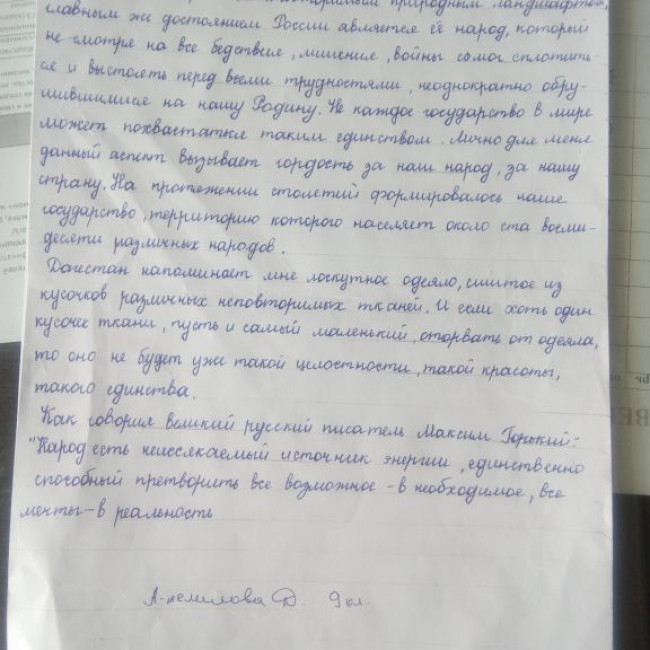 природным ландшафтом,
главным же достоянием России является её народ, который
не смотря на все бедствия, лишения, войны смог сплотить-
ся и выстоять перед всеми трудностями, неоднократно обру-
шившимися на нашу Родину. Не каждое государство в мире
может похвастаться таким единством. Лично для меня
данный аспект вызывает гордость за наш народ, за нашу
страну. На протяжении столетий формировалось наше
государство, территорию которого населяет около ста восьми-
десяти различных народов.
Дагестан напоминает мне лоскутное одеяло, сшитое из
кусочков различных неповторимых тканей. И если хоть один
кусочек ткани, пусть и самый маленький, оторвать от одеяла,
то оно не будет уже такой целостности, такой красоты,
такого единства.
Как говорил великий русский писатель Максим Горький:
"Народ есть неиссякаемый источник энергии, единственно
способный претворить все возможное - в необходимое, все
мечты - в реальность
Д. 9 кл.